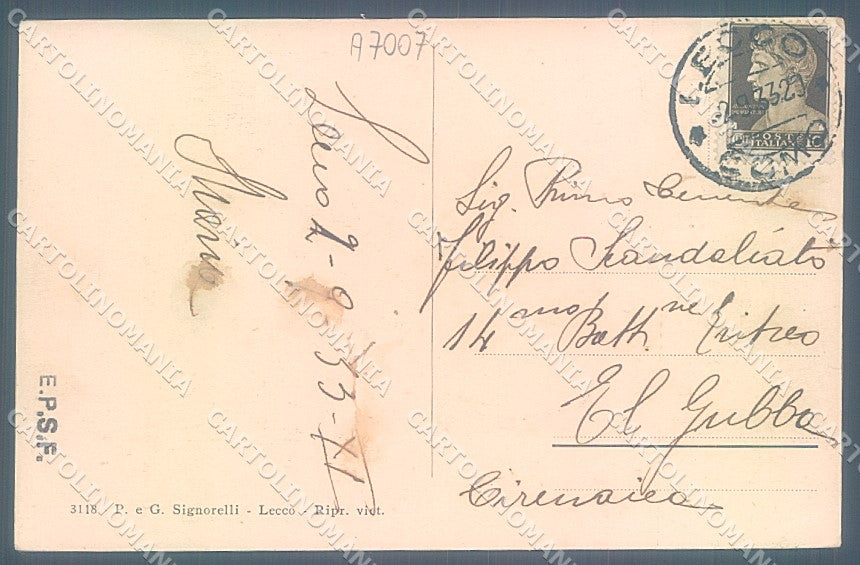 A7007
LECCO
COMO
POSTE
ITALIANE
Lecco 2-9-33-XI
Sig. Primo Tenente
Filippo Scandaliato
14mo Battne Eritreo
El Gubba
Cirenaica
E.P.S.F.
3118. P. e G. Signorelli - Lecco - Ripr. viet.
CARTOLINOMANIA